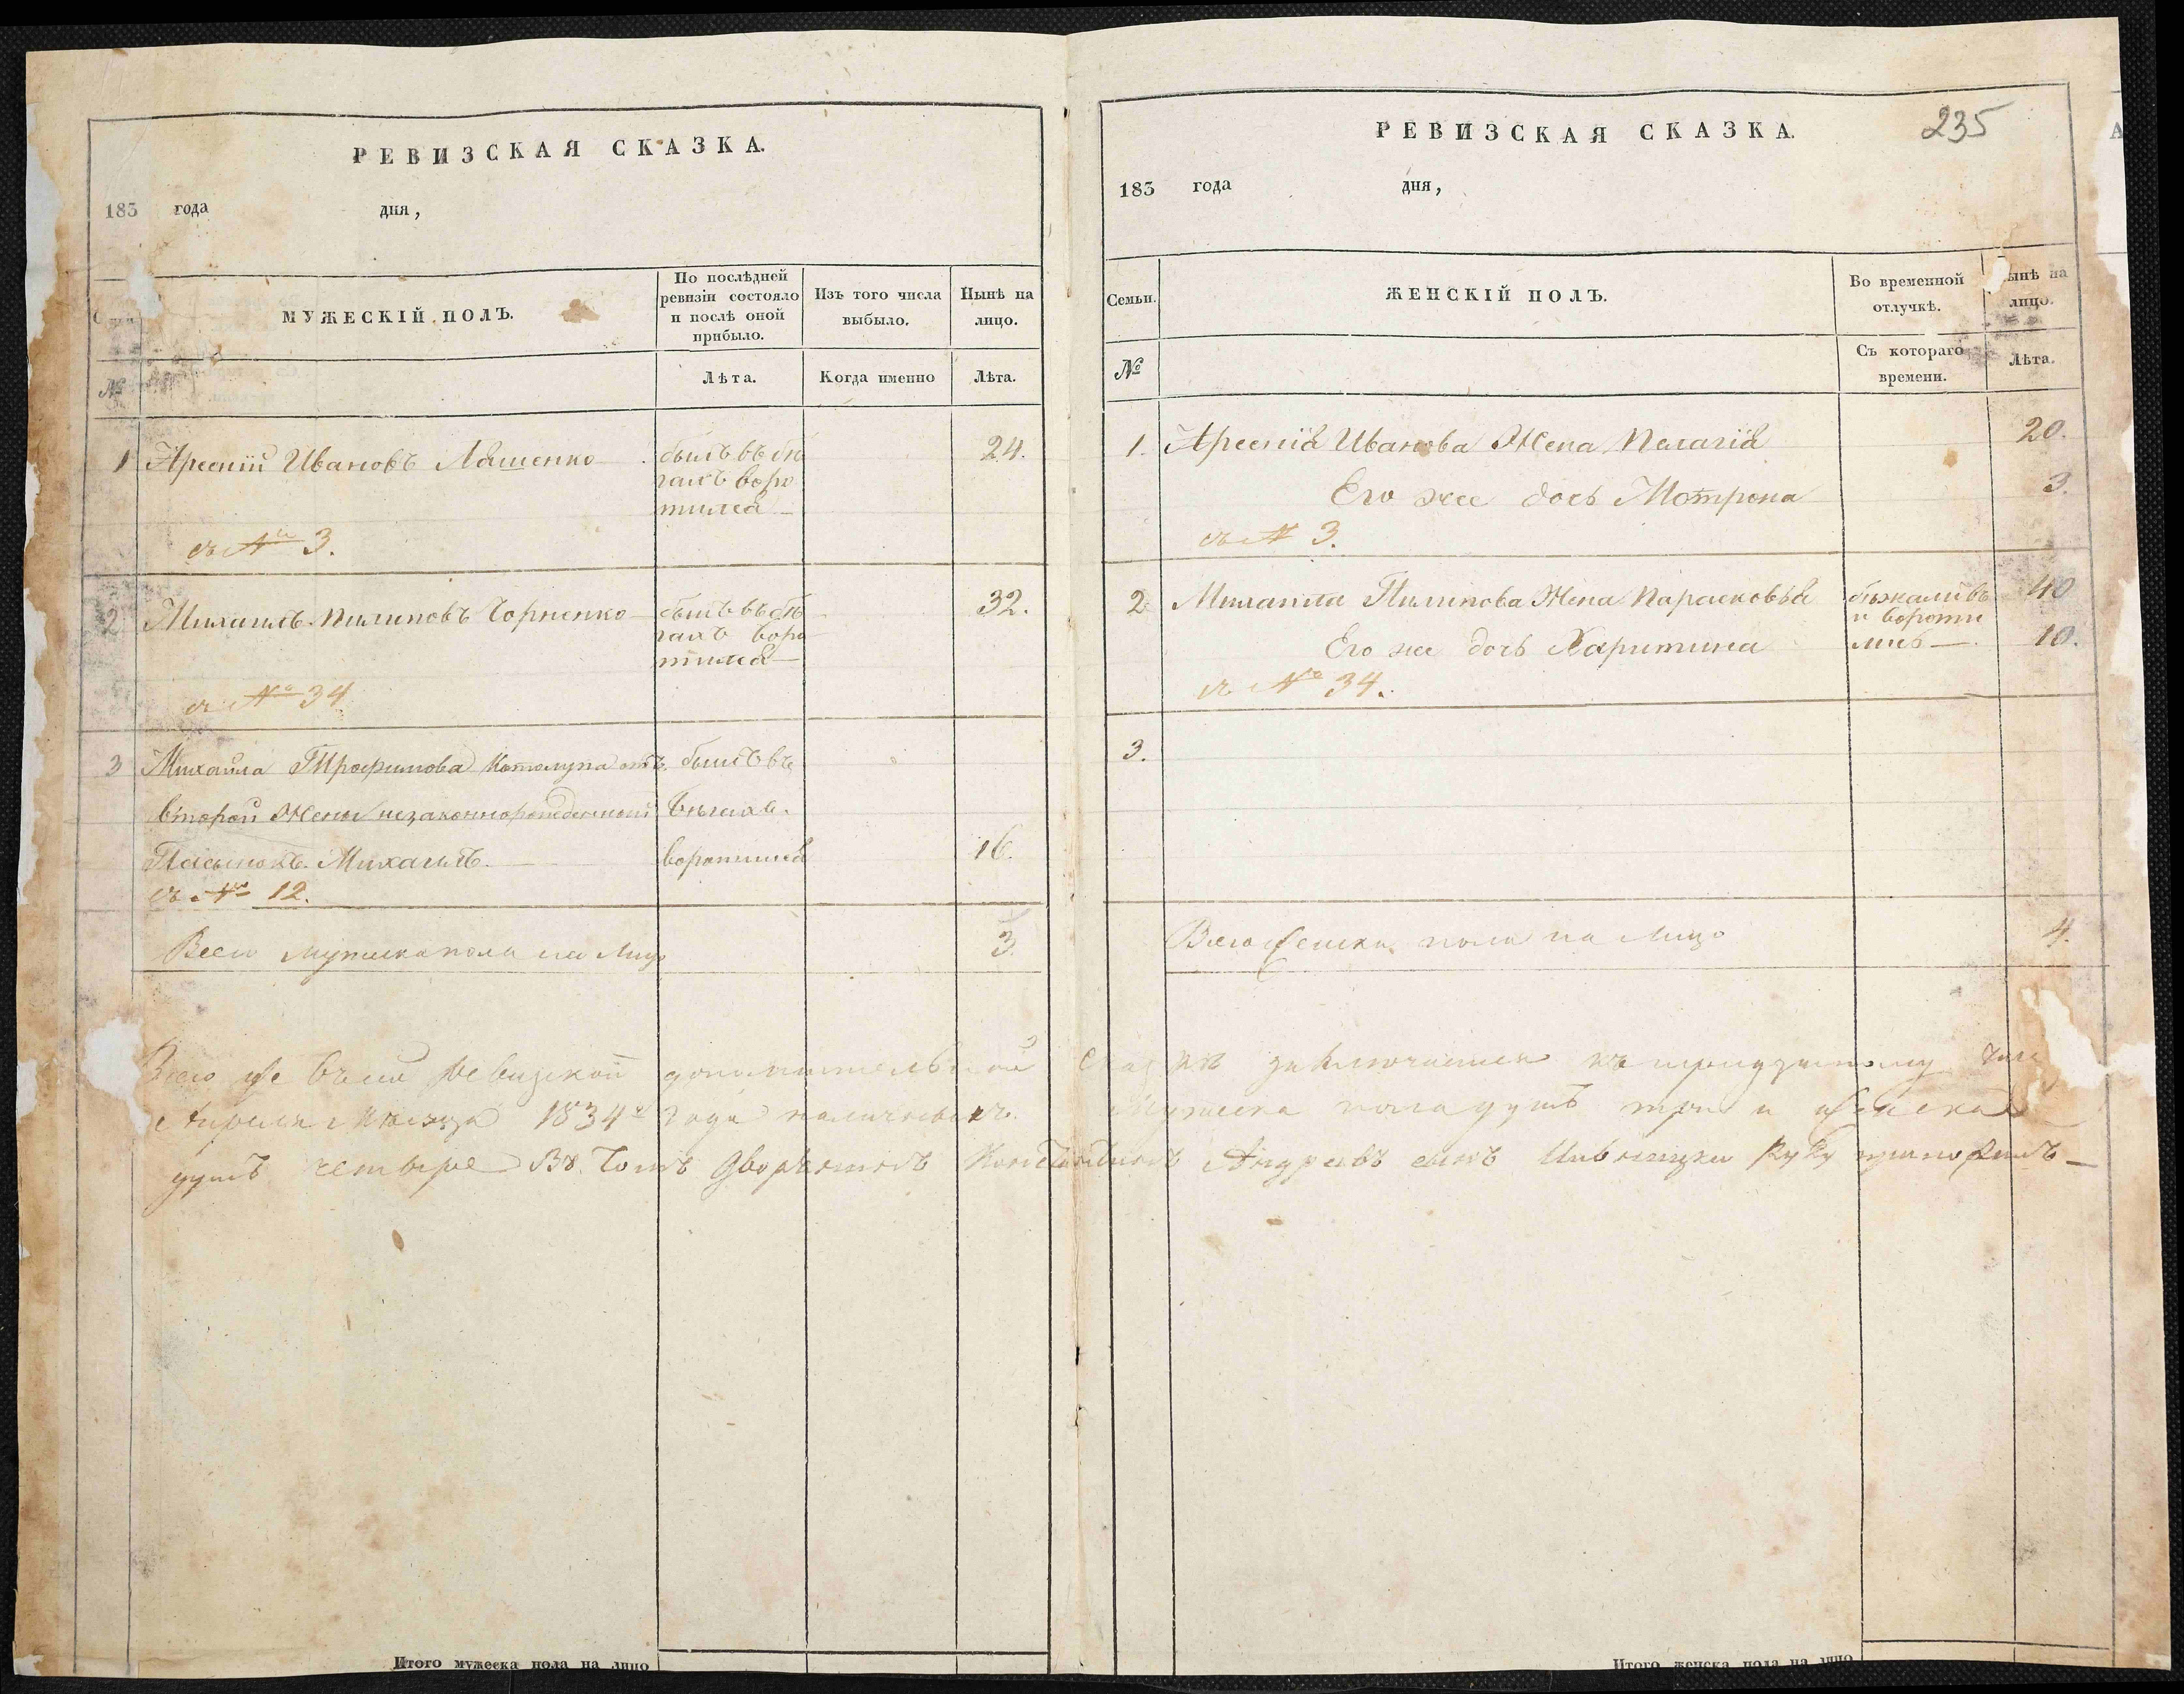 РЕВИЗСКАЯ СКАЗКА.
183 года дня,
МУЖЕСКІЙ ПОЛЪ.
По послѣдней
ревизіи состояло
и послѣ оной
прибыло.
Изъ того числа
выбыло.
Нынѣ на
лицо.
№
Лѣта.
Когда именно
Лѣта.
1 Арсеній Ивановъ Ляшенко былъ въ бѣ 24.
гахъ воро
тился
съ № 3.
2 Михаилъ Пилиповъ Чорненко былъ въ бѣ 32.
гахъ воро
тился
съ № 34
3 Михаила Трофимова Котолупа отъ былъ въ
второй жены незаконнорожденный бѣгахъ
Пасынокъ Михаилъ. воротился 16.
съ № 12.
Всего мужеска пола на лицо 3.
РЕВИЗСКАЯ СКАЗКА.
235
183 года дня,
Семьи.
ЖЕНСКІЙ ПОЛЪ.
Во временной
отлучкѣ.
ынѣ на
лицо.
№
Съ котораго
времени.
Лѣта.
1. Арсенія Иванова Жена Пелагія 20.
Его же дочь Мотрона 3.
съ № 3.
2 Михаила Пилипова Жена Парасковья бѣжали въ 40
и вороти
Его же дочь Харитина лись 10.
съ № 34.
3.
Всего женска пола на лицо 4.
Всего же въ сей ревизской дополнительной сказкѣ заключается къ тридцатому числ
Апреля мѣсяца 1834 года наличныхъ. Мужеска пола душъ три и женска
душъ четыре Въ томъ дворянинъ Константинъ Андреевъ сынъ руку приложилъ
Итого мужеска пола на лицо
Итого женска пола на лицо